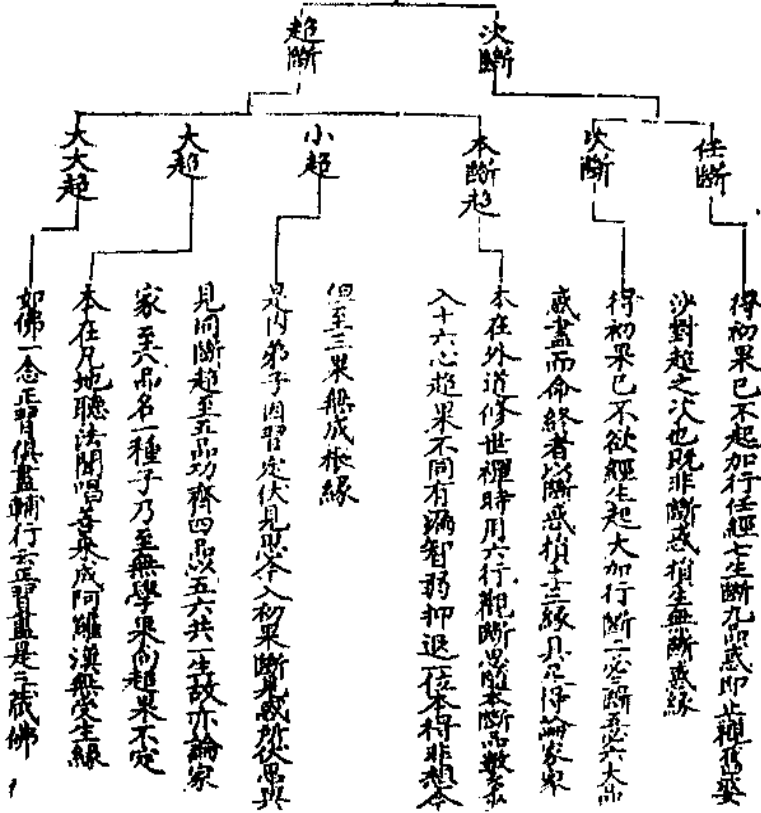 次斷
超斷
任斷
次斷
本斷超
小超
大超
大大超
得初果已不起加行任經七生斷九品惑即止
沙對超之次也既非斷惑損生無斷惑緣
得初果已不欲經生起大加行斷二必三斷五必六大品
惑盡而命終者以斷惑損生三緣具足得論家家
本在外道修世禪時用六行觀斷思惟本斷品數
入十六心超果不同有漏智弱抑退一位本得非想今
但至三果無成根緣
是內弟子因習定伏見思今入初果斷見惑所伏思與
見同斷超至五品功齊四品以五六共一生故亦論家
家至六品名一種子乃至無學果向超果不定
本在凡地聽法聞唱善來成阿羅漢無受生緣
如佛一念正習俱盡輔行云正習盡是三藏佛